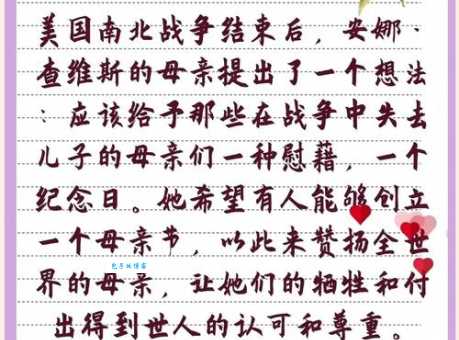 美国南北战争结束后，安娜·
查维斯的母亲提出了一个想法
：应该给予那些在战争中失去
儿子的母亲们一种慰藉，一个
纪念日。她希望有人能够创立
一个母亲节，以此来赞扬全世
界的母亲，让她们的牺牲和付
出得到世人的认可和尊重。